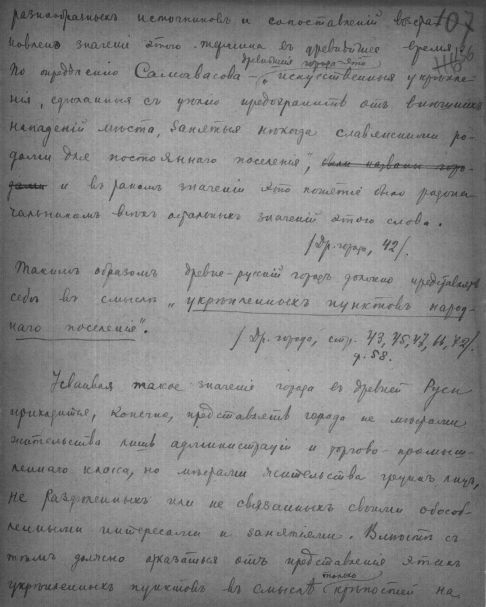 разнообразныхъ источниковъ и сопоставленій возста- 107
новленъ значеніе этого термина въ древнѣйшее время.
древнѣйшіе города - это
По опредѣленію Самоквасова - „искусственныя укрѣпле-
нія, сдѣланныя съ цѣлію предохранить отъ внѣшнихъ
нападеній мѣста, занятыя нѣкогда славянскими ро-
дами для постояннаго поселенія", были названы горо-
дами и въ такомъ значеніи это понятіе было родона-
чальникомъ всѣхъ остальныхъ значеній этого слова.
/Др. города, 42/.
Такимъ образомъ древне-русскій городъ должно представлять
себѣ въ смыслѣ „укрѣпленныхъ пунктовъ народ-
наго поселенія".
/Др. города, стр. 43, 45, 47, 42/.
д. 58.
Усваивая такое значеніе города въ древней Руси
приходится, конечно, представлять города не мѣстами
жительства лишь администраціи и торгово-промыш-
леннаго класса, но мѣстами жительства группъ лицъ,
не разъединенныхъ или не связанныхъ своими обособ-
ленными интересами и занятіями. Вмѣстѣ съ
тѣмъ должно отказаться отъ представленія этихъ
только
укрѣпленныхъ пунктовъ въ смыслѣ крѣпостей на